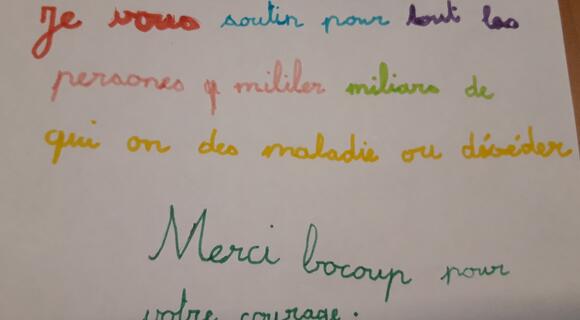 Je vous soutin pour tout les
persones y mililer miliars de
qui on des maladie ou dévéder
Merci bocoup pour
votre courage.